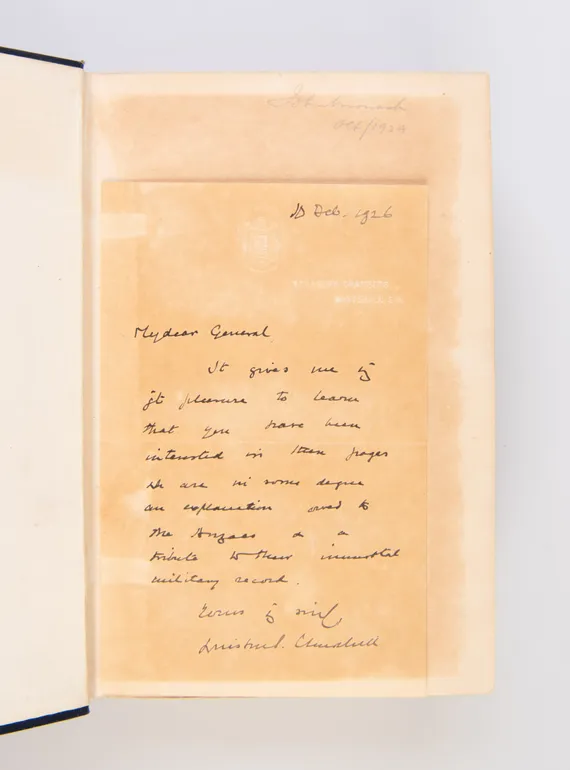 Oct/1929
10 Feb. 1926
TREASURY CHAMBERS
My dear General
It gives me vy
gt pleasure to learn
that you have been
interested in these pages
are in some degree
an explanation owed to
the Anzacs & a
tribute to their immortal
military record.
Yours vy sincly
Winston S. Churchill